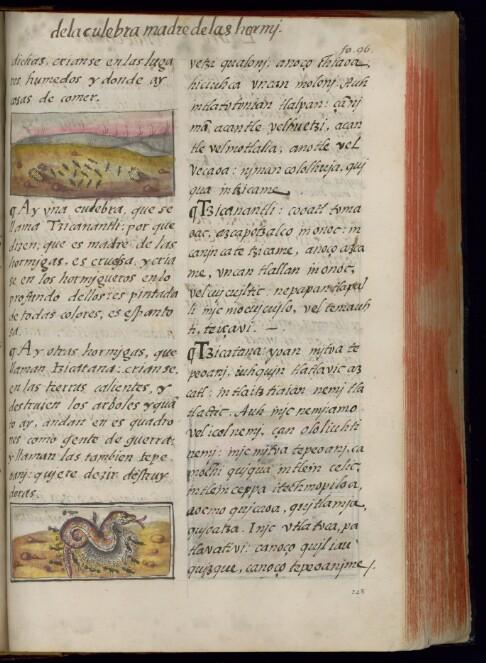 dela culebra madre delas hormj.
fo. 96.
dichas, crianse en las luga
res humedos y donde ay
cosas de comer.
¶ Ay vna culebra, que se
llama Tzicanantli: por que
dizen, que es madre de las
hormigas. es gruessa, y cria
se en los hormigueros en lo
profundo dellos: es pintada
de todas colores, es espanto
sa.
¶ Ay otras hormigas, que
llaman, tzicatana: crianse,
en las tierras calientes, y
destruien los arboles y quã
to ay, andan en esquadro
nes como gente de guerra;
y llaman las tambien tepe
oanj: quiere dezir, destruy
doras.
vetzi qualonj. anoço
hiciuhca vncan molonj. Auh
tlalpan: canj
mã, acantle velhuetzi, acan
tle velmotlalia, anotle vel
vecaoa: njman cololhuja, quj
qua in tzicame.
¶ Tzicanantli: cooatl toma
oac, azcapotzalco in onoc: in
canjn cate tzicame, anoço azca
me, vncan tlallan in onoc,
vel cujcujltic: nepapan tlapal
li injc mocujcujlo, vel temauh
ti, teiçavi. —
¶ Tzicatana: yoan mjtoa te
peoanj, iuhqujn tlatlavic az
catl: in tlaltʒ nemj tla
tlactic. Auh injc nemj amo
vel icel nemj, çan ololiuhti
nemj: injc mjtva tepeoanj, ca
mochi qujqua in tlein celic,
in tlein ceppa itech mopiloa,
aocmo qujcaoa, qujtlamja,
Injc vtlatoca, pa
tlavativi: canoço
qujzque, canoço tepeoanjme /.
248